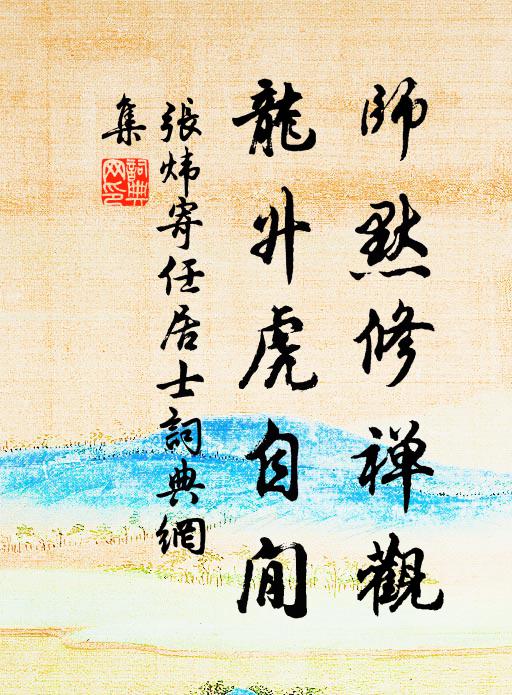 師默修禪觀
龍升虎自閒
張煒寄任居士詞典網
集
詞典網印